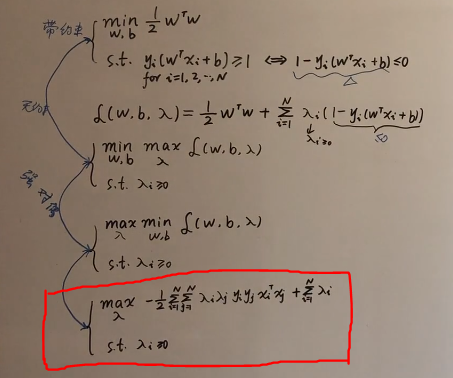 带约束
min w,b ½ wᵀw
s.t. yᵢ(wᵀxᵢ+b) ≥ 1 ⟺ 1-yᵢ(wᵀxᵢ+b) ≤ 0
for i=1,2,…,N
△
无约束
L(w,b,λ) = ½ wᵀw + Σᵢ₌₁ᴺ λᵢ(1-yᵢ(wᵀxᵢ+b))
λᵢ≥0
≤0
min w,b max λ L(w,b,λ)
s.t. λᵢ≥0
强对偶
max λ min w,b L(w,b,λ)
s.t. λᵢ≥0
max λ -½ Σᵢ₌₁ᴺ Σⱼ₌₁ᴺ λᵢλⱼ yᵢyⱼ xᵢᵀxⱼ + Σᵢ₌₁ᴺ λᵢ
s.t. λᵢ≥0